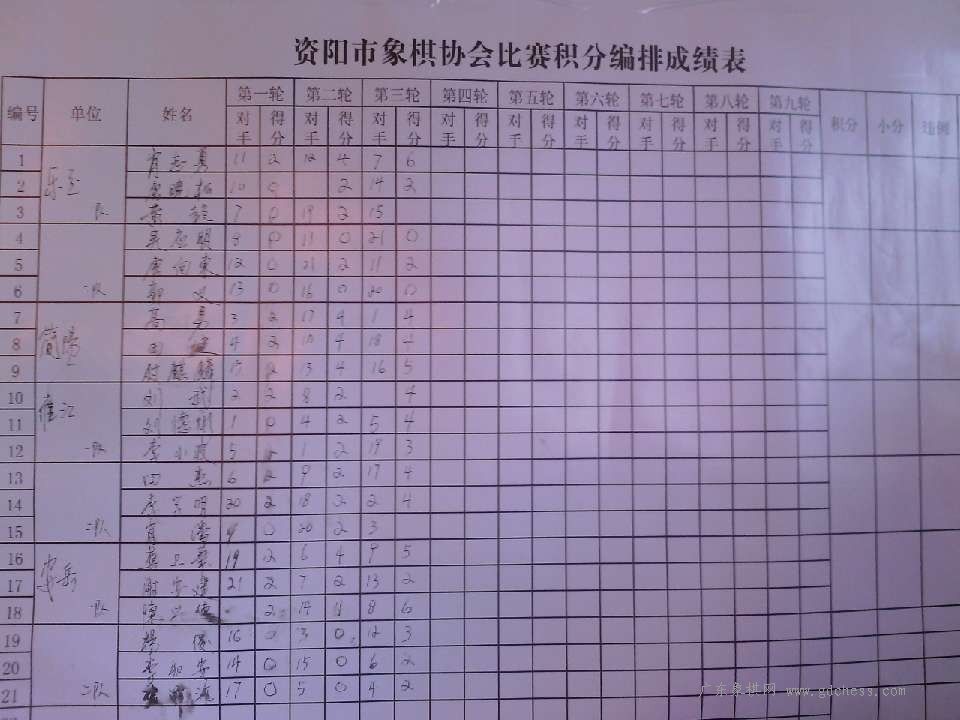 资阳市象棋协会比赛积分编排成绩表
编号 单位 姓名 第一轮 第二轮 第三轮 第四轮 第五轮 第六轮 第七轮 第八轮 第九轮 积分 小分 违例
对手 得分 对手 得分 对手 得分 对手 得分 对手 得分 对手 得分 对手 得分 对手 得分 对手 得分
1 乐至 肖志勇 11 2 12 4 7 6
2 10 0 2 14 2
3 队 7 0 19 2 15
4 8 0 11 0 21 0
5 唐向东 12 0 21 2 11 2
6 二队 郭义 13 0 16 0 20 0
7 简阳 高勇 3 2 17 4 1 4
8 田健 4 2 10 4 18 4
9 麒麟 15 2 13 4 16 5
10 雁江 刘武 2 2 8 2 4
11 刘德 1 0 4 2 5 4
12 一队 李小 5 1 2 19 3
13 田杰 6 2 9 2 17 4
14 李 明 20 2 18 2 2 4
15 二队 肖 9 0 20 2 3
16 安岳 19 2 6 4 9 5
17 谢安建 21 2 7 2 13 2
18 一队 陈 2 14 8 6
19 杨俊 16 0 3 0 12 3
20 安 14 0 15 0 6 2
21 二队 17 0 5 0 4 2
广东象棋网 www.gdchess.com